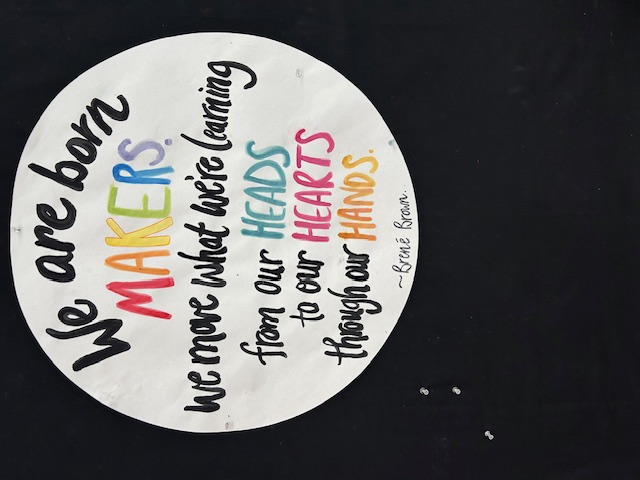 We are born
MAKERS.
we move what we're learning
from our HEADS
to our HEARTS
through our HANDS.
~Brené Brown.